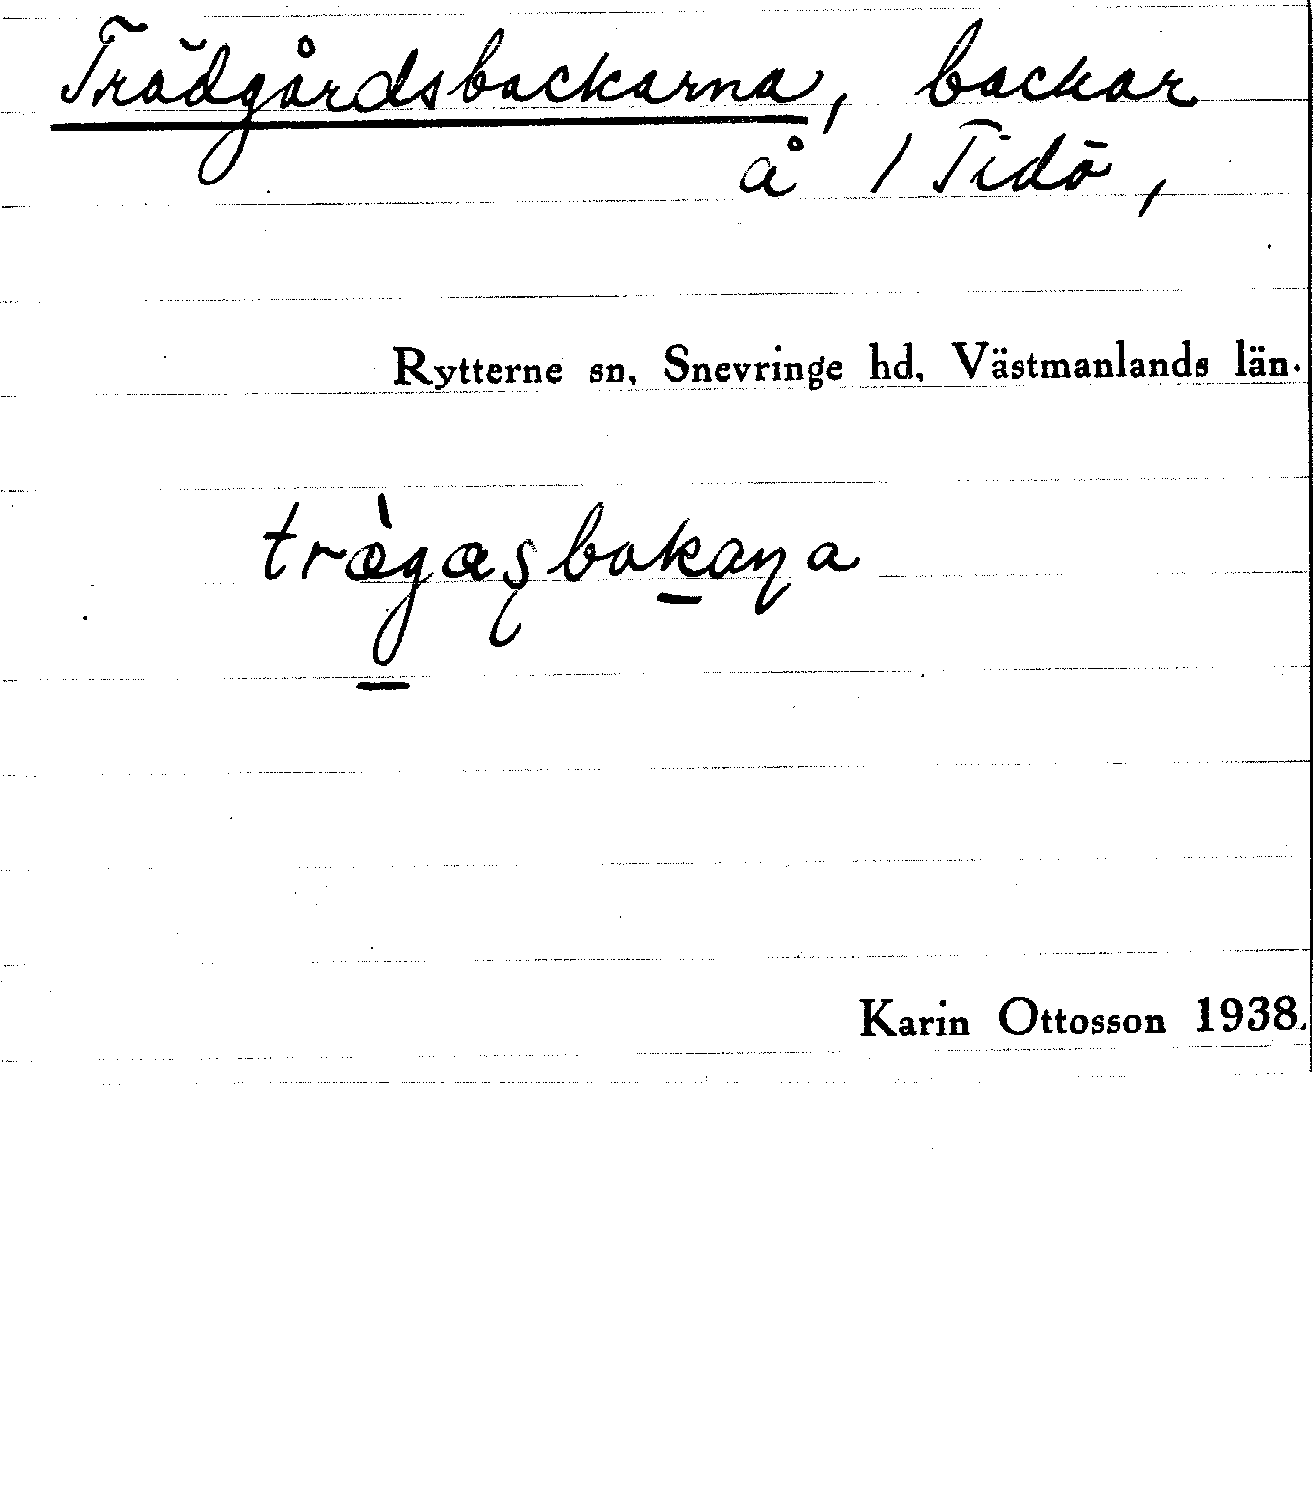 Trädgårdsbackarna, backar
å 1 Tidö,
Rytterne sn, Snevringe hd, Västmanlands län.
træ̀gæʂbakaɳa
Karin Ottosson 1938.